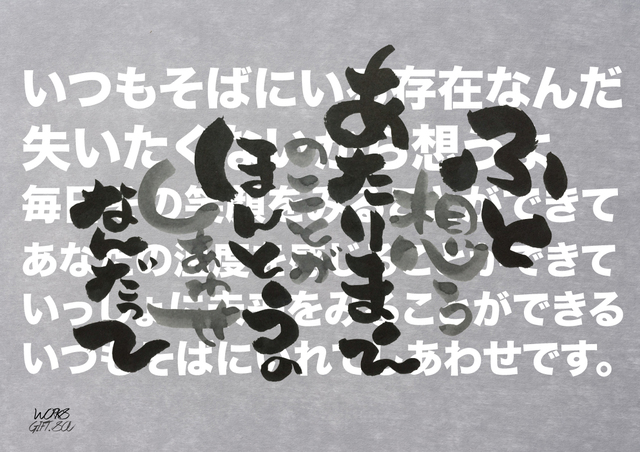 いつもそばにいる存在なんだ
失いたくないから想うよ
毎日その笑顔をみることができて
あなたの温度を感じることができて
いっしょに未来をみることができる
いつもそばにいれてしあわせです。
ふと
想う
あたりまえ
のことが
ほんとうの
しあわせ
なんだって